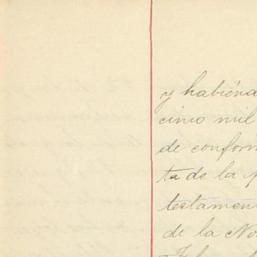 y habiénd
cinco mil
de conform
ta de la p
testamen
de la No